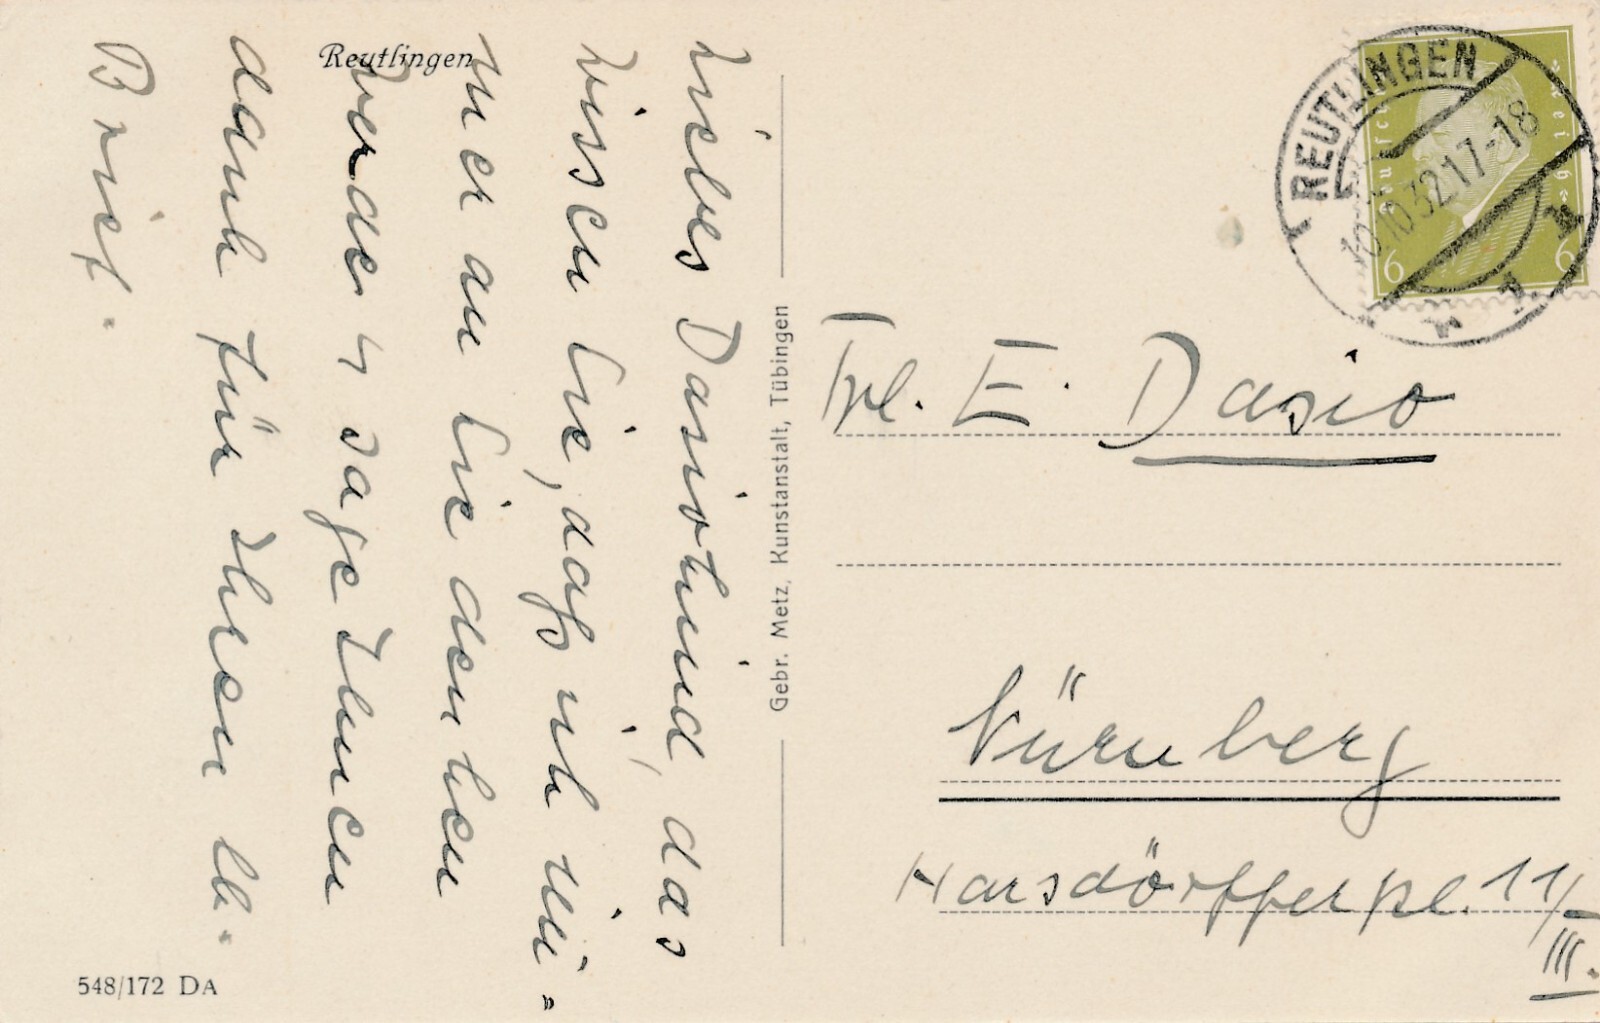 Reutlingen
Liebes Dasiokind, das
wissen Sie, daß ich im-
mer an Sie denken
werde & sage Ihnen
dank für Ihren lb.
Brief.
548/172 DA
Gebr. Metz, Kunstanstalt, Tübingen
REUTLINGEN
10.32.17-18
Deutsches Reich
6 6
Frl. E. Dasio
Nürnberg
Harsdörfferpl. 11/
III.